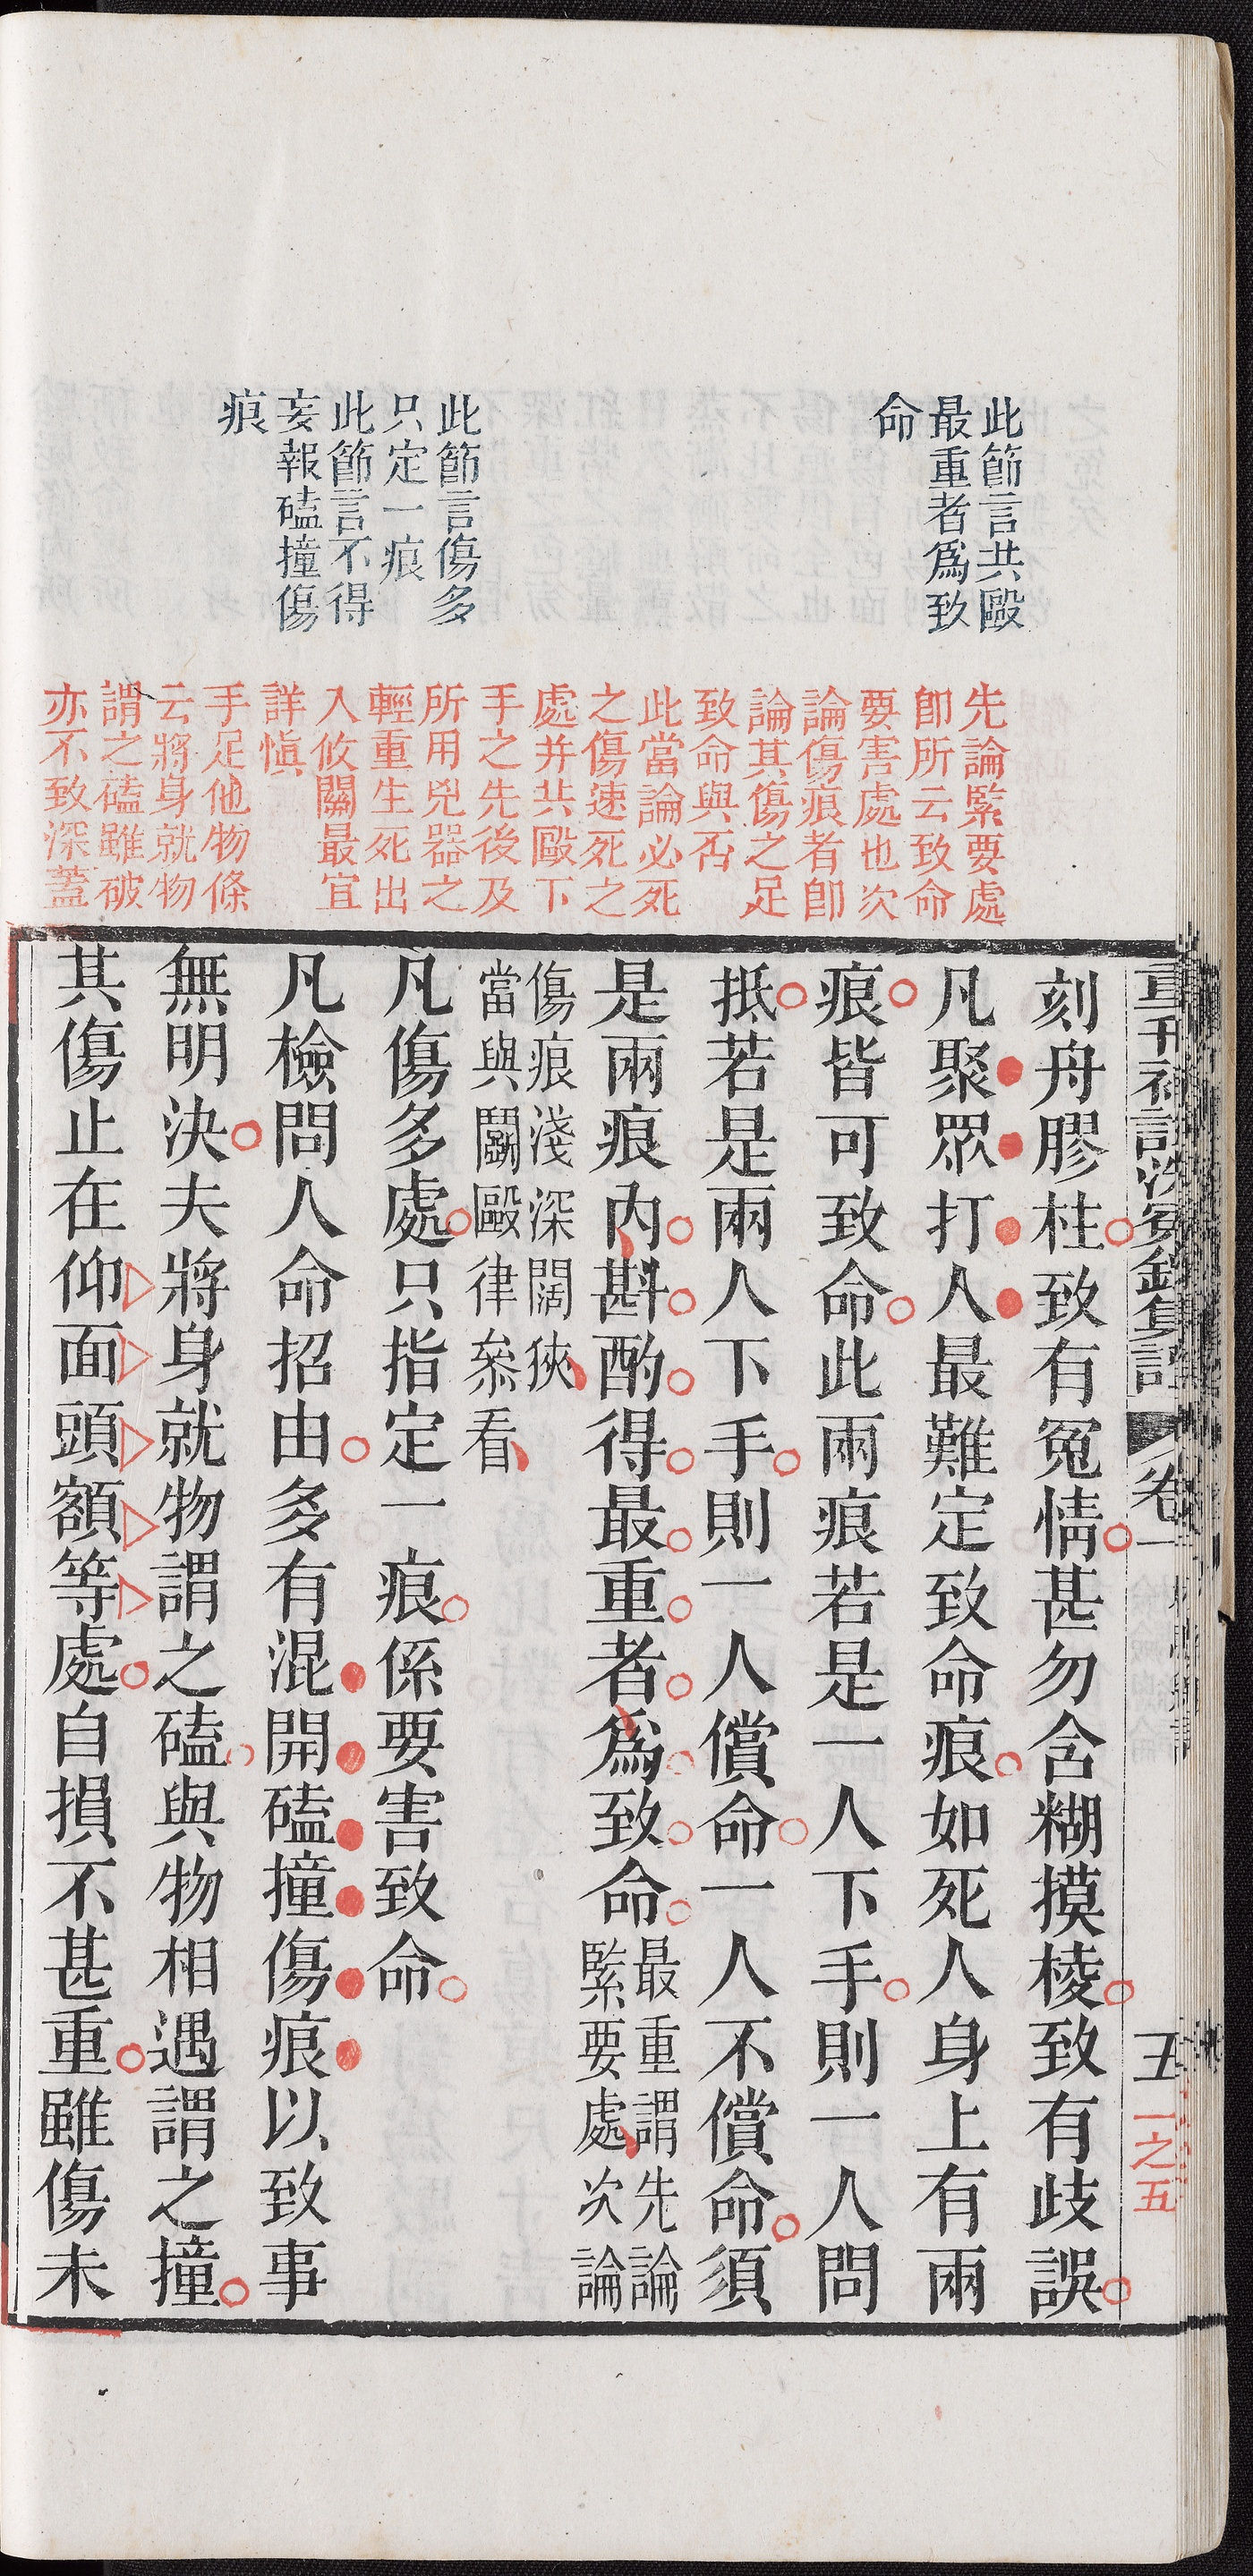 此節言共毆
最重者爲致
命
此節言傷多
只定一痕
此節言不得
妄報磕撞傷
痕
先論緊要處
卽所云致命
要害處也次
論傷痕者卽
論其傷之足
致命與否
此當論必死
之傷速死之
處并共毆下
手之先後及
所用兇器之
輕重生死出
入攸關最宜
詳愼
手足他物條
云將身就物
謂之磕雖破
亦不致深蓋
重刊補註洗冤錄集證 卷一 五
一之五
刻舟膠柱致有冤情甚勿含糊摸棱致有歧誤
凡聚眾打人最難定致命痕如死人身上有兩
痕皆可致命此兩痕若是一人下手則一人問
抵若是兩人下手則一人償命一人不償命須
是兩痕內斟酌得最重者爲致命最重謂先論
緊要處次論
傷痕淺深闊狹
當與鬭毆律叅看
凡傷多處只指定一痕係要害致命
凡檢問人命招由多有混開磕撞傷痕以致事
無明決夫將身就物謂之磕與物相遇謂之撞
其傷止在仰面頭額等處自損不甚重雖傷未